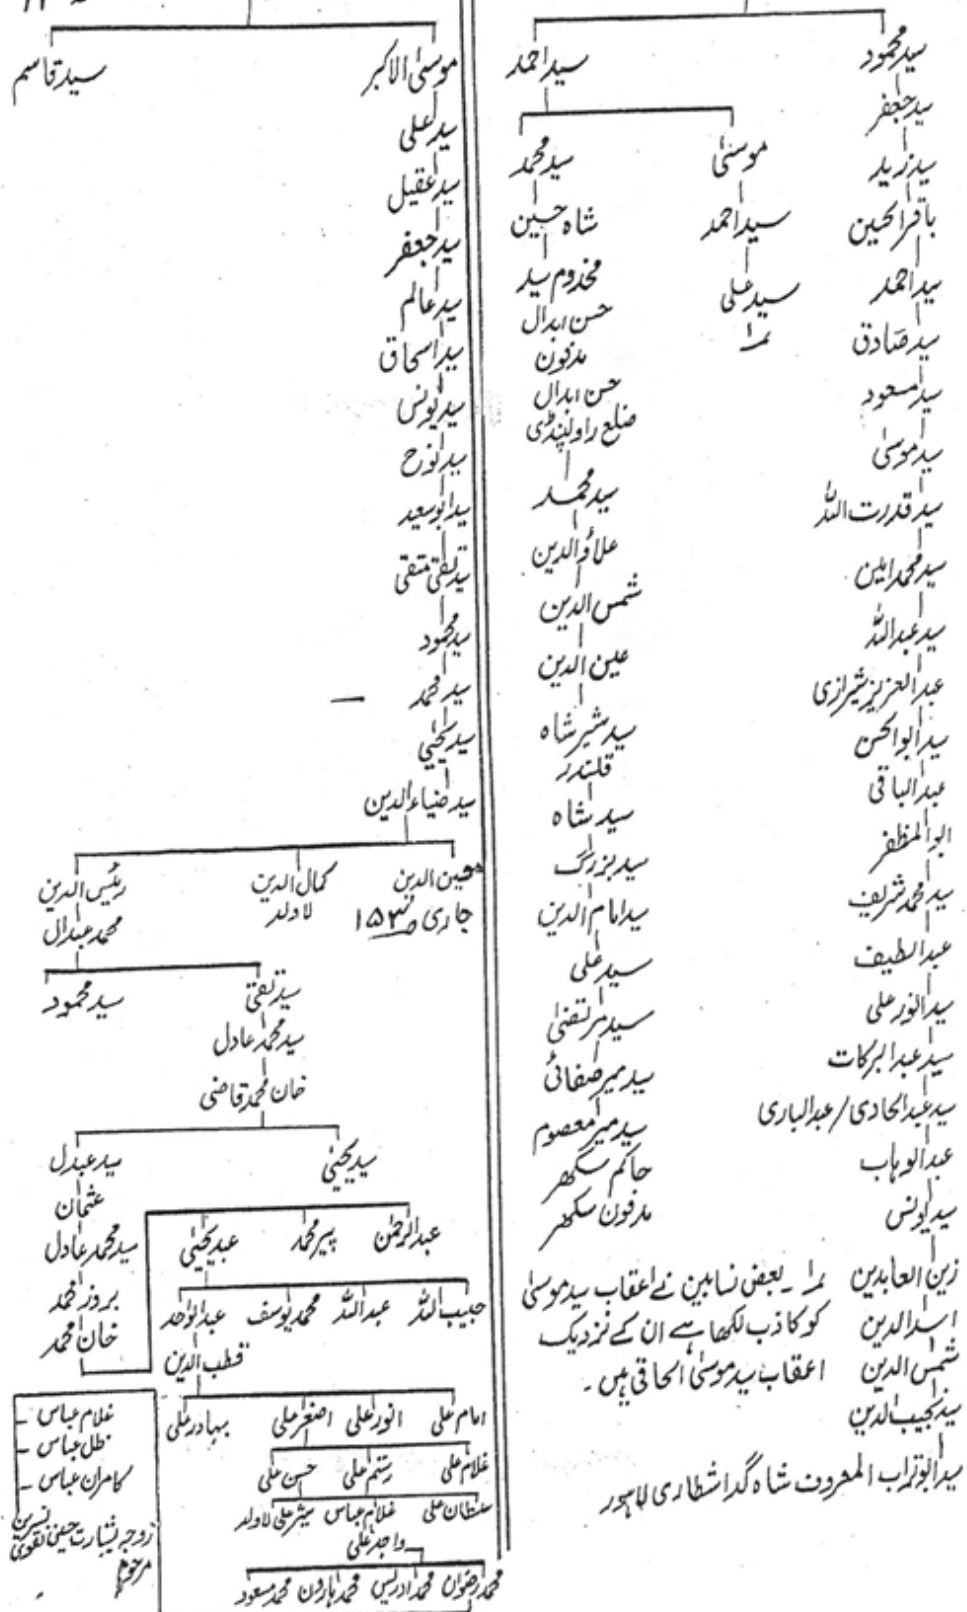 سید محمود
سید احمد
سید جعفر
سید زید
باقر الحسین
سید احمد
سید صادق
سید مسعود
سید موسیٰ
سید قدرت اللہ
سید محمد امین
سید عبداللہ
عبدالعزیز شیرازی
سید ابوالحسن
عبدالباقی
ابوالمظفر
سید محمد شریف
عبدالطیف
سید انور علی
سید عبدالبرکات
سید عبدالحادی/عبدالباری
عبدالوہاب
سید یونس
زین العابدین
اسد الدین
شمس الدین
سید نجیب الدین
سید ابوتراب المعروف شاہ گدا شطاری لاہور
موسیٰ
سید احمد
سید علی
نمبر۱
سید محمد
شاہ حسین
مخدوم سید
حسن ابدال
مدفون
حسن ابدال
ضلع راولپنڈی
سید محمد
علاؤالدین
شمس الدین
عین الدین
سید شیر شاہ
قلندر
سید شاہ
سید بزرگ
سید امام الدین
سید علی
سید مرتضیٰ
سید میر صفائی
سید میر معصوم
حاکم سکھر
مدفون سکھر
نمبر۱۔ بعض نسابین نے اعقاب سید موسیٰ
کو کاذب لکھا ہے ان کے نزدیک
اعقاب سید موسیٰ الحاقی ہیں۔
موسیٰ الاکبر
سید قاسم
سید علی
سید عقیل
سید جعفر
سید عالم
سید اسحاق
سید یونس
سید نوح
سید ابوسعید
سید تقی متقی
سید محمود
سید محمد
سید یحییٰ
سید ضیاءالدین
معین الدین
جاری ص ۱۵۳
کمال الدین
لاولد
رئیس الدین
محمد عبدال
سید تقی
سید محمود
سید محمد عادل
خان محمد قاضی
سید یحییٰ
سید عبدل
عثمان
سید محمد عادل
خان محمد
عبدالرحمٰن
پیر محمد
عبد یحییٰ
حبیب اللہ
عبداللہ
محمد یوسف
عبدالواحد
قطب الدین
امام علی
انور علی
اصغر علی
بہادر علی
غلام علی
رستم علی
حسن علی
سلطان علی
غلام عباس
لاولد
واجد علی
محمد رضوان
محمد ادریس
محمد ہارون
محمد مسعود
غلام عباس
ظل عباس
کامران عباس
نسرین
زوجہ بشارت حسین نقوی
مرحوم